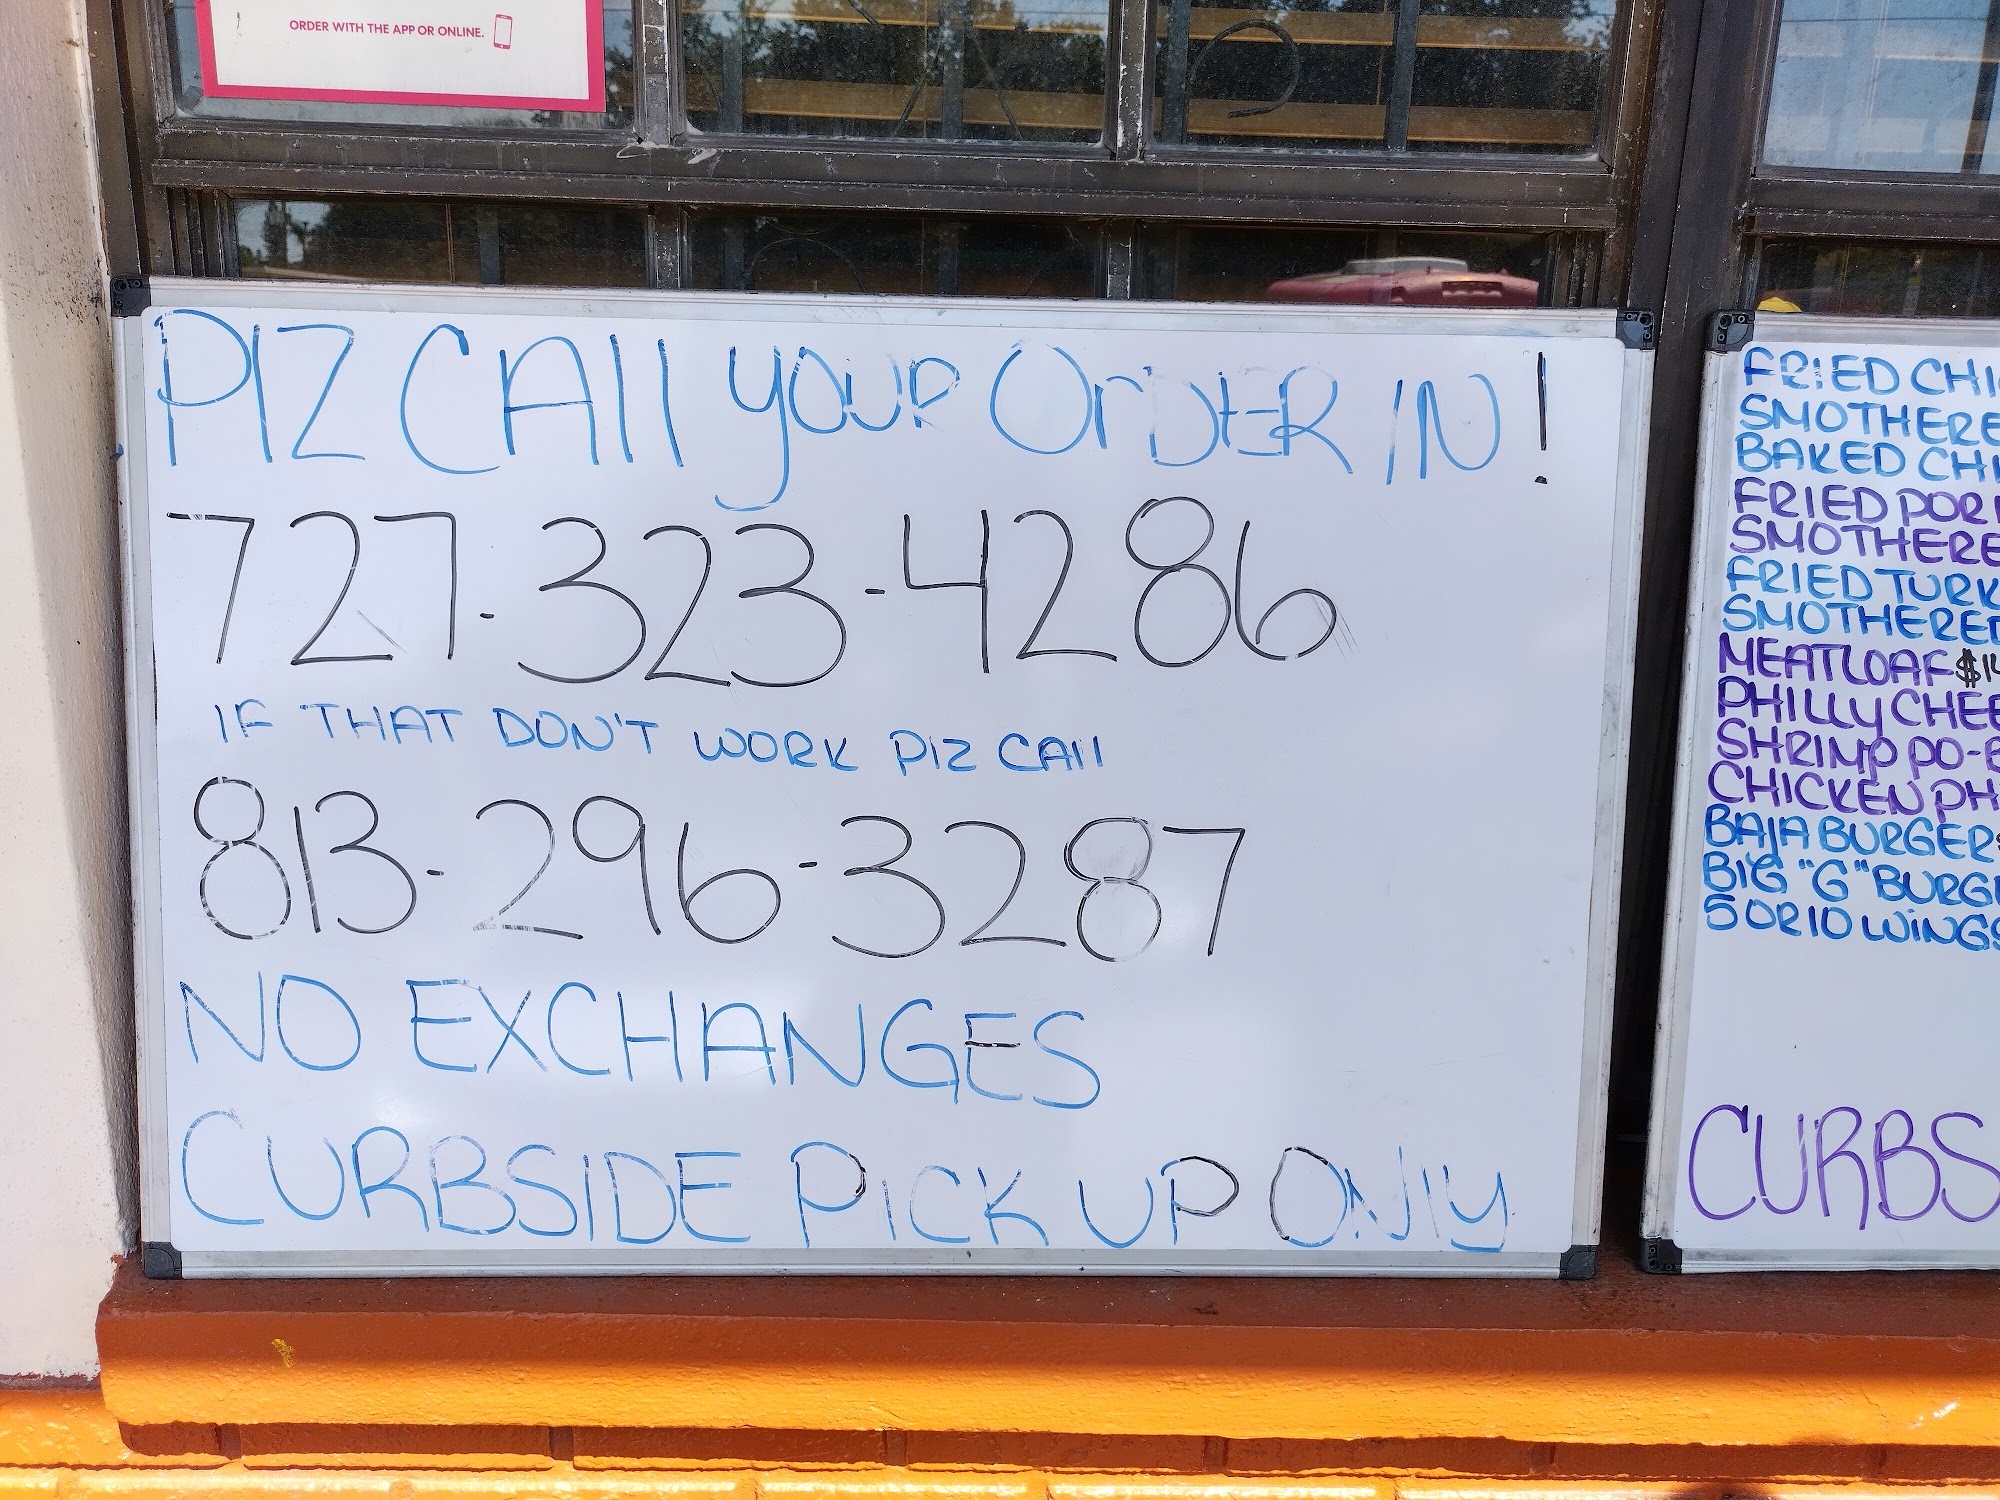 ORDER WITH THE APP OR ONLINE.
PIZ CAll yOUR OrDER IN!
727-323-4286
IF THAT DON'T WORK PIZ CAll
813-296-3287
NO EXCHANGES
CURBSIDE PICK UP ONly
FRIED CHI
SMOTHERE
BAKED CHI
FRIED POR
SMOTHERE
FRIED TURK
SMOTHERED
MEATLOAF $14
PHILLY CHEE
SHRIMP PO-B
CHICKEN PH
BAJA BURGER
BIG "G" BURGE
5 OR 10 WINGS
CURBS